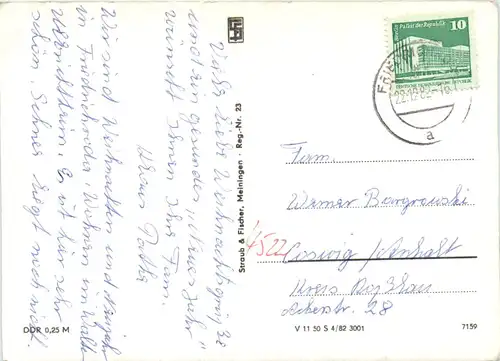 Wir sind Weihnachten und Neujahr
in Friedrichroda, wohnen im Walter
Ulbrichtheim. Es ist hier sehr
schön. Schnee liegt noch nicht.
Viele liebe Weihnachtsgrüße
und ein gesundes "Neues Jahr"
wünscht Ihnen Ihre Fam.
Straub & Fischer, Meiningen · Reg.-Nr. 23
10
Palast der Republik
DEUTSCHE DEMOKRATISCHE REPUBLIK
22.12.82
a
Fam.
Werner
4522
Coswig / Anhalt
Kreis Roßlau
28
DDR 0,25 M
V 11 50 S 4/82 3001
7159